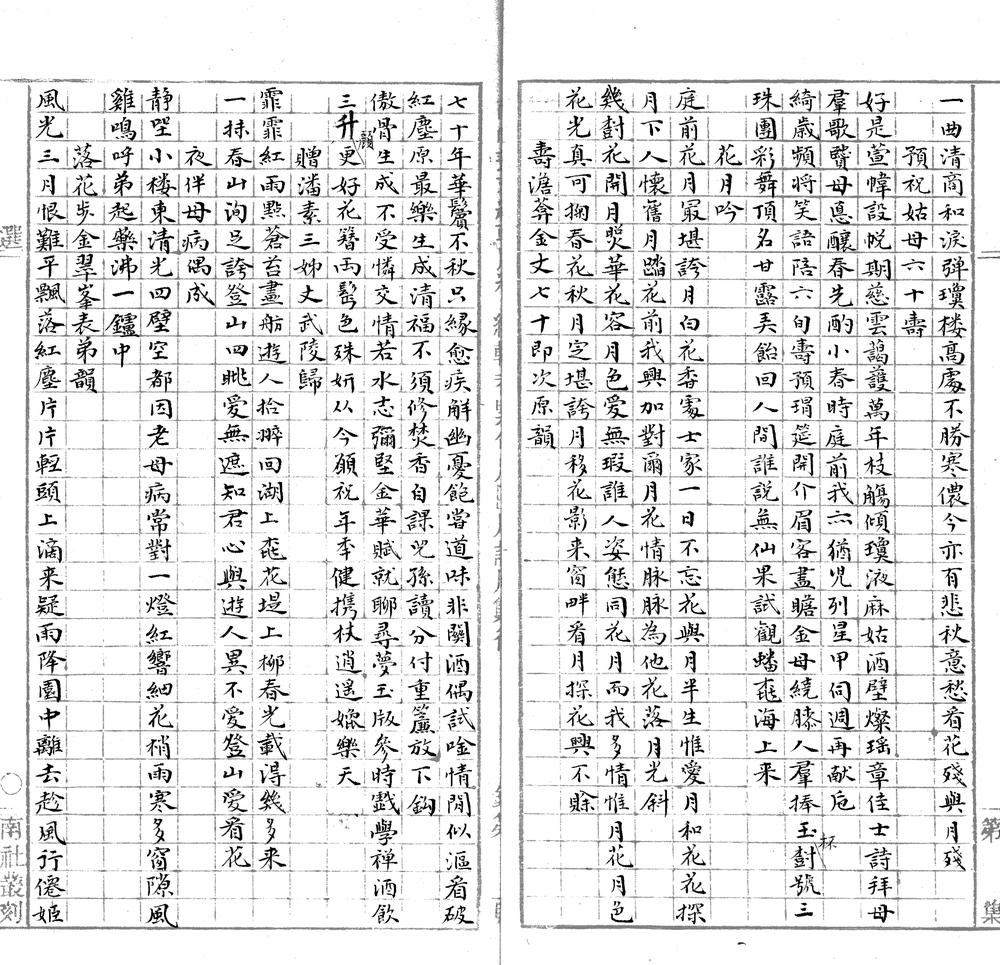 一曲清商和淚彈瓊楼高處不勝寒儂今亦有悲秋意愁看花殘與月殘
預祝姑母六十壽
好是萱幃設帨期慈雲藹護萬年枝觴傾瓊液麻姑酒壁燦瑶章佳士詩拜母
羣歌聲母悳釀春先酌小春時庭前我亦猶兒列星甲伺週再献卮
綺歲頻將笑語陪六旬壽預瑁筵開介眉客盡瞻金母繞膝人羣捧玉杯對號三
珠團彩舞頂名甘露美飴回人間誰説無仙果試觀蟠桃海上来
花月吟
庭前花月最堪誇月白花香處士家一日不忘花與月半生惟愛月和花花探
月下人懷舊月踏花前我興加對爾月花情脉脉為他花落月光斜
幾對花開月爕華花容月色愛無瑕誰人姿態同花月而我多情惟月花月色
花光真可掬春花秋月定堪誇月移花影来窗畔看月探花興不賖
壽澹葊金丈七十即次原韻
七十年華鬢不秋只緣愈疾解幽憂飽嘗道味非關酒偶試唫情閒似漚看破
紅塵原最樂生成清福不須修焚香自課兒孫讀分付重簾放下鉤
傲骨生成不受憐交情若水志彌堅金華賦就聊尋夢玉版參時戲學禅酒飲
三升顔更好花簪兩髩色殊妍从今願祝年年健携杖逍遥嬾樂天
贈潘素三姊丈武陵歸
霏霏紅雨點蒼苔畫舫遊人拾翠回湖上桃花堤上柳春光載得幾多来
一抹春山洵足誇登山四眺愛無遮知君心與遊人異不愛登山愛看花
夜伴母病偶成
静坐小楼東清光四壁空都因老母病常對一燈紅響細花梢雨寒多窗隙風
雞鳴呼弟起藥沸一鑪中
落花步金翠峯表弟韻
風光三月恨難平飄落紅塵片片輕頭上滴来疑雨降園中離去趁風行僊姬
選
南社叢刻
第
集